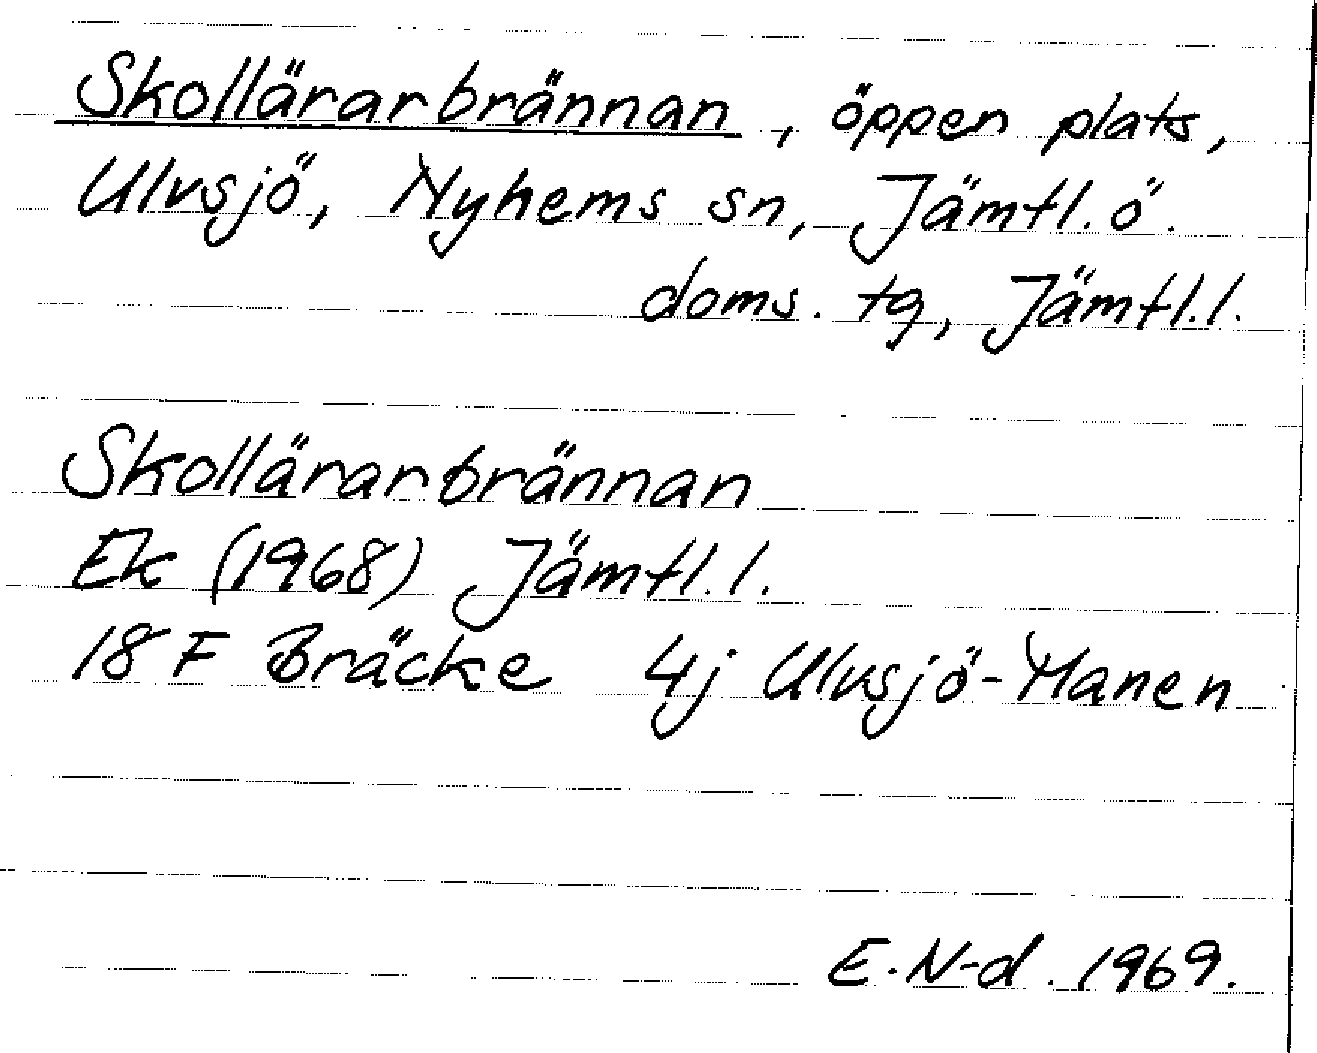 Skollärarbrännan, öppen plats,
Ulvsjö, Nyhems sn, Jämtl. ö.
doms. tg, Jämtl. l.
Skollärarbrännan
Ek (1968) Jämtl. l.
18 F Bräcke 4j Ulvsjö-Manen
E. N-d. 1969.